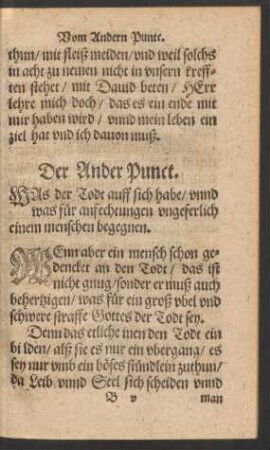 Vom Andern Punct.
thun/ mit fleiß meiden/ vnd weil solchs
in acht zu nemen nicht in vnsern kreff-
ten stehet/ mit Dauid beten/ HErr
lehre mich doch/ das es ein ende mit
mir haben wird/ vnnd mein leben ein
ziel hat vnd ich dauon muß.
Der Ander Punct.
WAs der Todt auff sich habe/ vnnd
was für anfechtungen vngeferlich
einem menschen begegnen.
WEnn aber ein mensch schon ge-
dencket an den Todt/ das ist
nicht gnug/ sonder er muß auch
behertzigen/ was für ein groß vbel vnd
schwere straffe Gottes der Todt sey.
Denn das etliche inen den Todt ein
bilden/ alß sie es nur ein vbergang/ es
sey nur vmb ein böses stündlein zuthun/
da Leib vnnd Seel sich scheiden vnnd
B v man